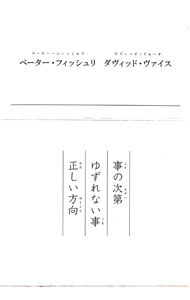 ペーター・フィッシュリ ダヴィッド・ヴァイス
事の次第
ゆずれない事
正しい方向